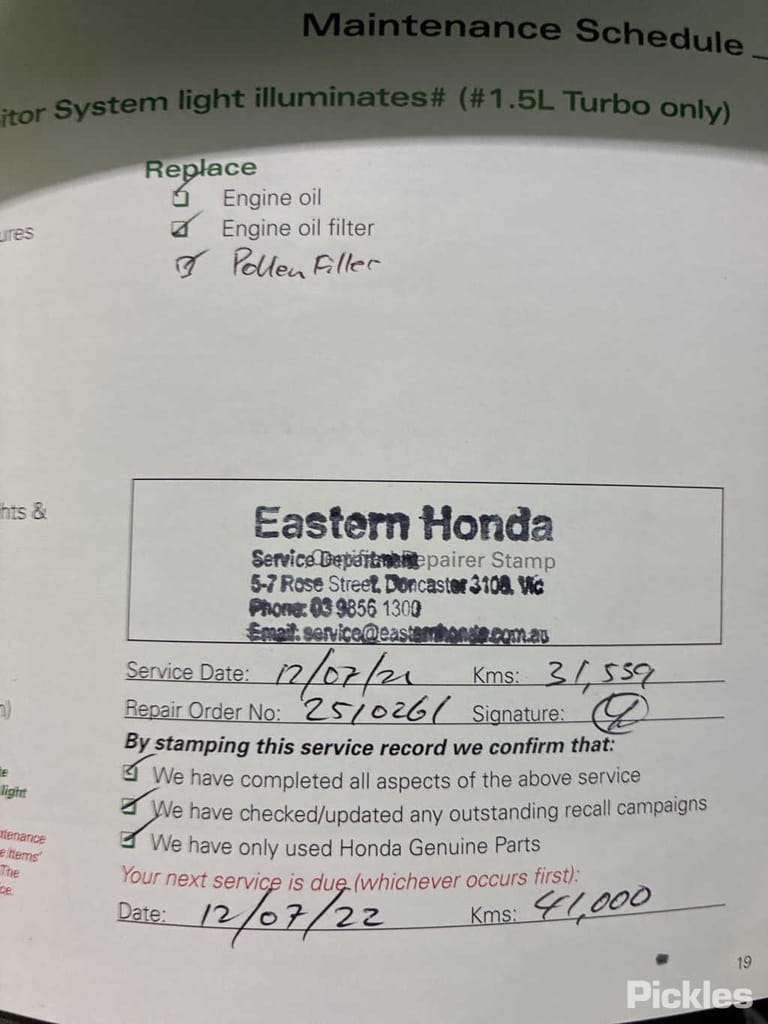 Maintenance Schedule
itor System light illuminates# (#1.5L Turbo only)
Replace
Engine oil
ures
Engine oil filter
Pollen Filter
hts &
Eastern Honda
Service Department Repairer Stamp
5-7 Rose Street, Doncaster 3108, Vic
Phone: 03 9856 1300
Email: service@easternhonda.com.au
Service Date: 12/07/21 Kms: 31,559
n)
Repair Order No: 2510261 Signature:
By stamping this service record we confirm that:
te
We have completed all aspects of the above service
light
We have checked/updated any outstanding recall campaigns
ntenance
We have only used Honda Genuine Parts
e items'
The
Your next service is due (whichever occurs first):
ce.
Date: 12/07/22 Kms: 41,000
19
Pickles